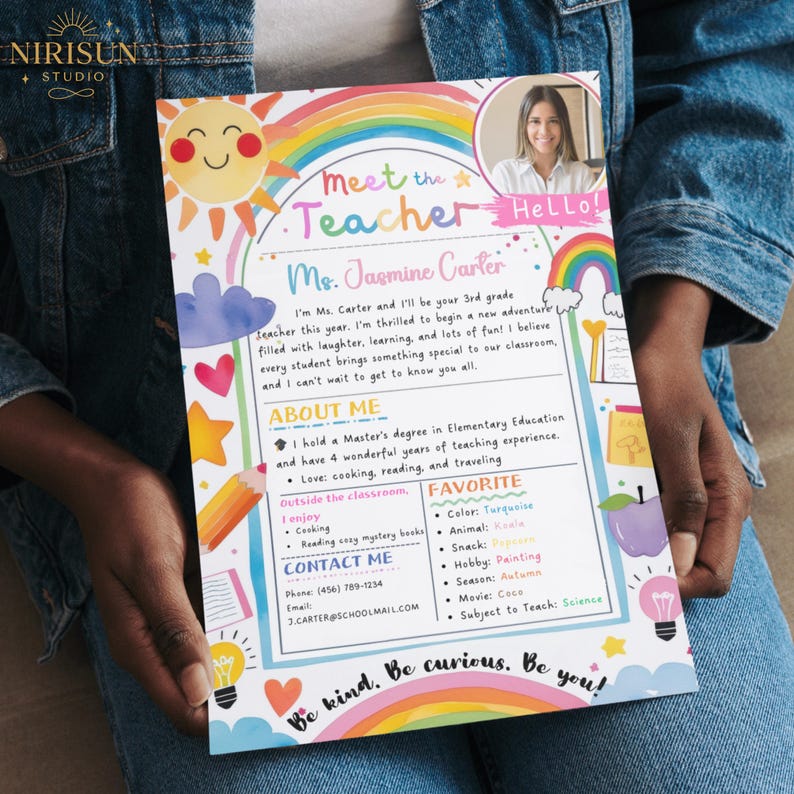 NIRISUN
STUDIO
Meet the
Teacher
HeLLo!
Ms. Jasmine Carter
I'm Ms. Carter and I'll be your 3rd grade
teacher this year. I'm thrilled to begin a new adventure
filled with laughter, learning, and lots of fun! I believe
every student brings something special to our classroom,
and I can't wait to get to know you all.
ABOUT ME
I hold a Master's degree in Elementary Education
and have 4 wonderful years of teaching experience.
• Love: cooking, reading, and traveling
Outside the classroom,
I enjoy
• Cooking
• Reading cozy mystery books
CONTACT ME
Phone: (456) 789-1234
Email:
J.CARTER@SCHOOLMAIL.COM
FAVORITE
• Color: Turquoise
• Animal: Koala
• Snack: Popcorn
• Hobby: Painting
• Season: Autumn
• Movie: Coco
• Subject to Teach: Science
Be kind. Be curious. Be you!